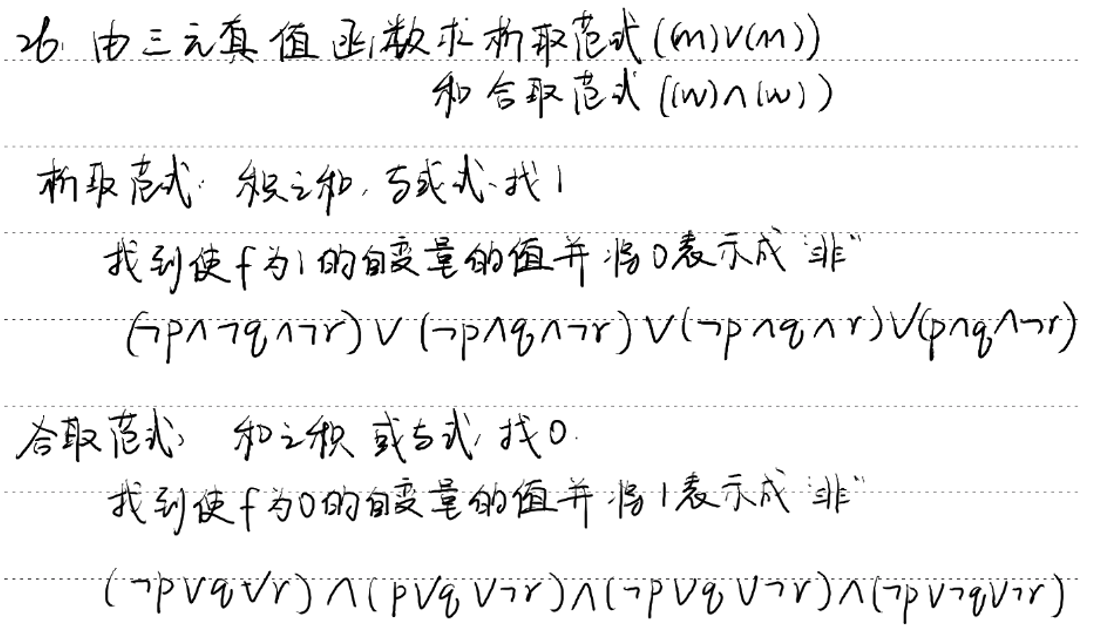 26. 由三元真值函数求析取范式((m)∨(m))
和合取范式((w)∧(w))
析取范式: 积之和, 与或式, 找1
找到使f为1的自变量的值并将0表示成“非”
(¬p∧¬q∧¬r)∨(¬p∧q∧¬r)∨(¬p∧q∧r)∨(p∧q∧¬r)
合取范式: 和之积 或与式, 找0.
找到使f为0的自变量的值并将1表示成“非”
(¬p∨q∨r)∧(p∨q∨¬r)∧(¬p∨q∨¬r)∧(¬p∨¬q∨¬r)